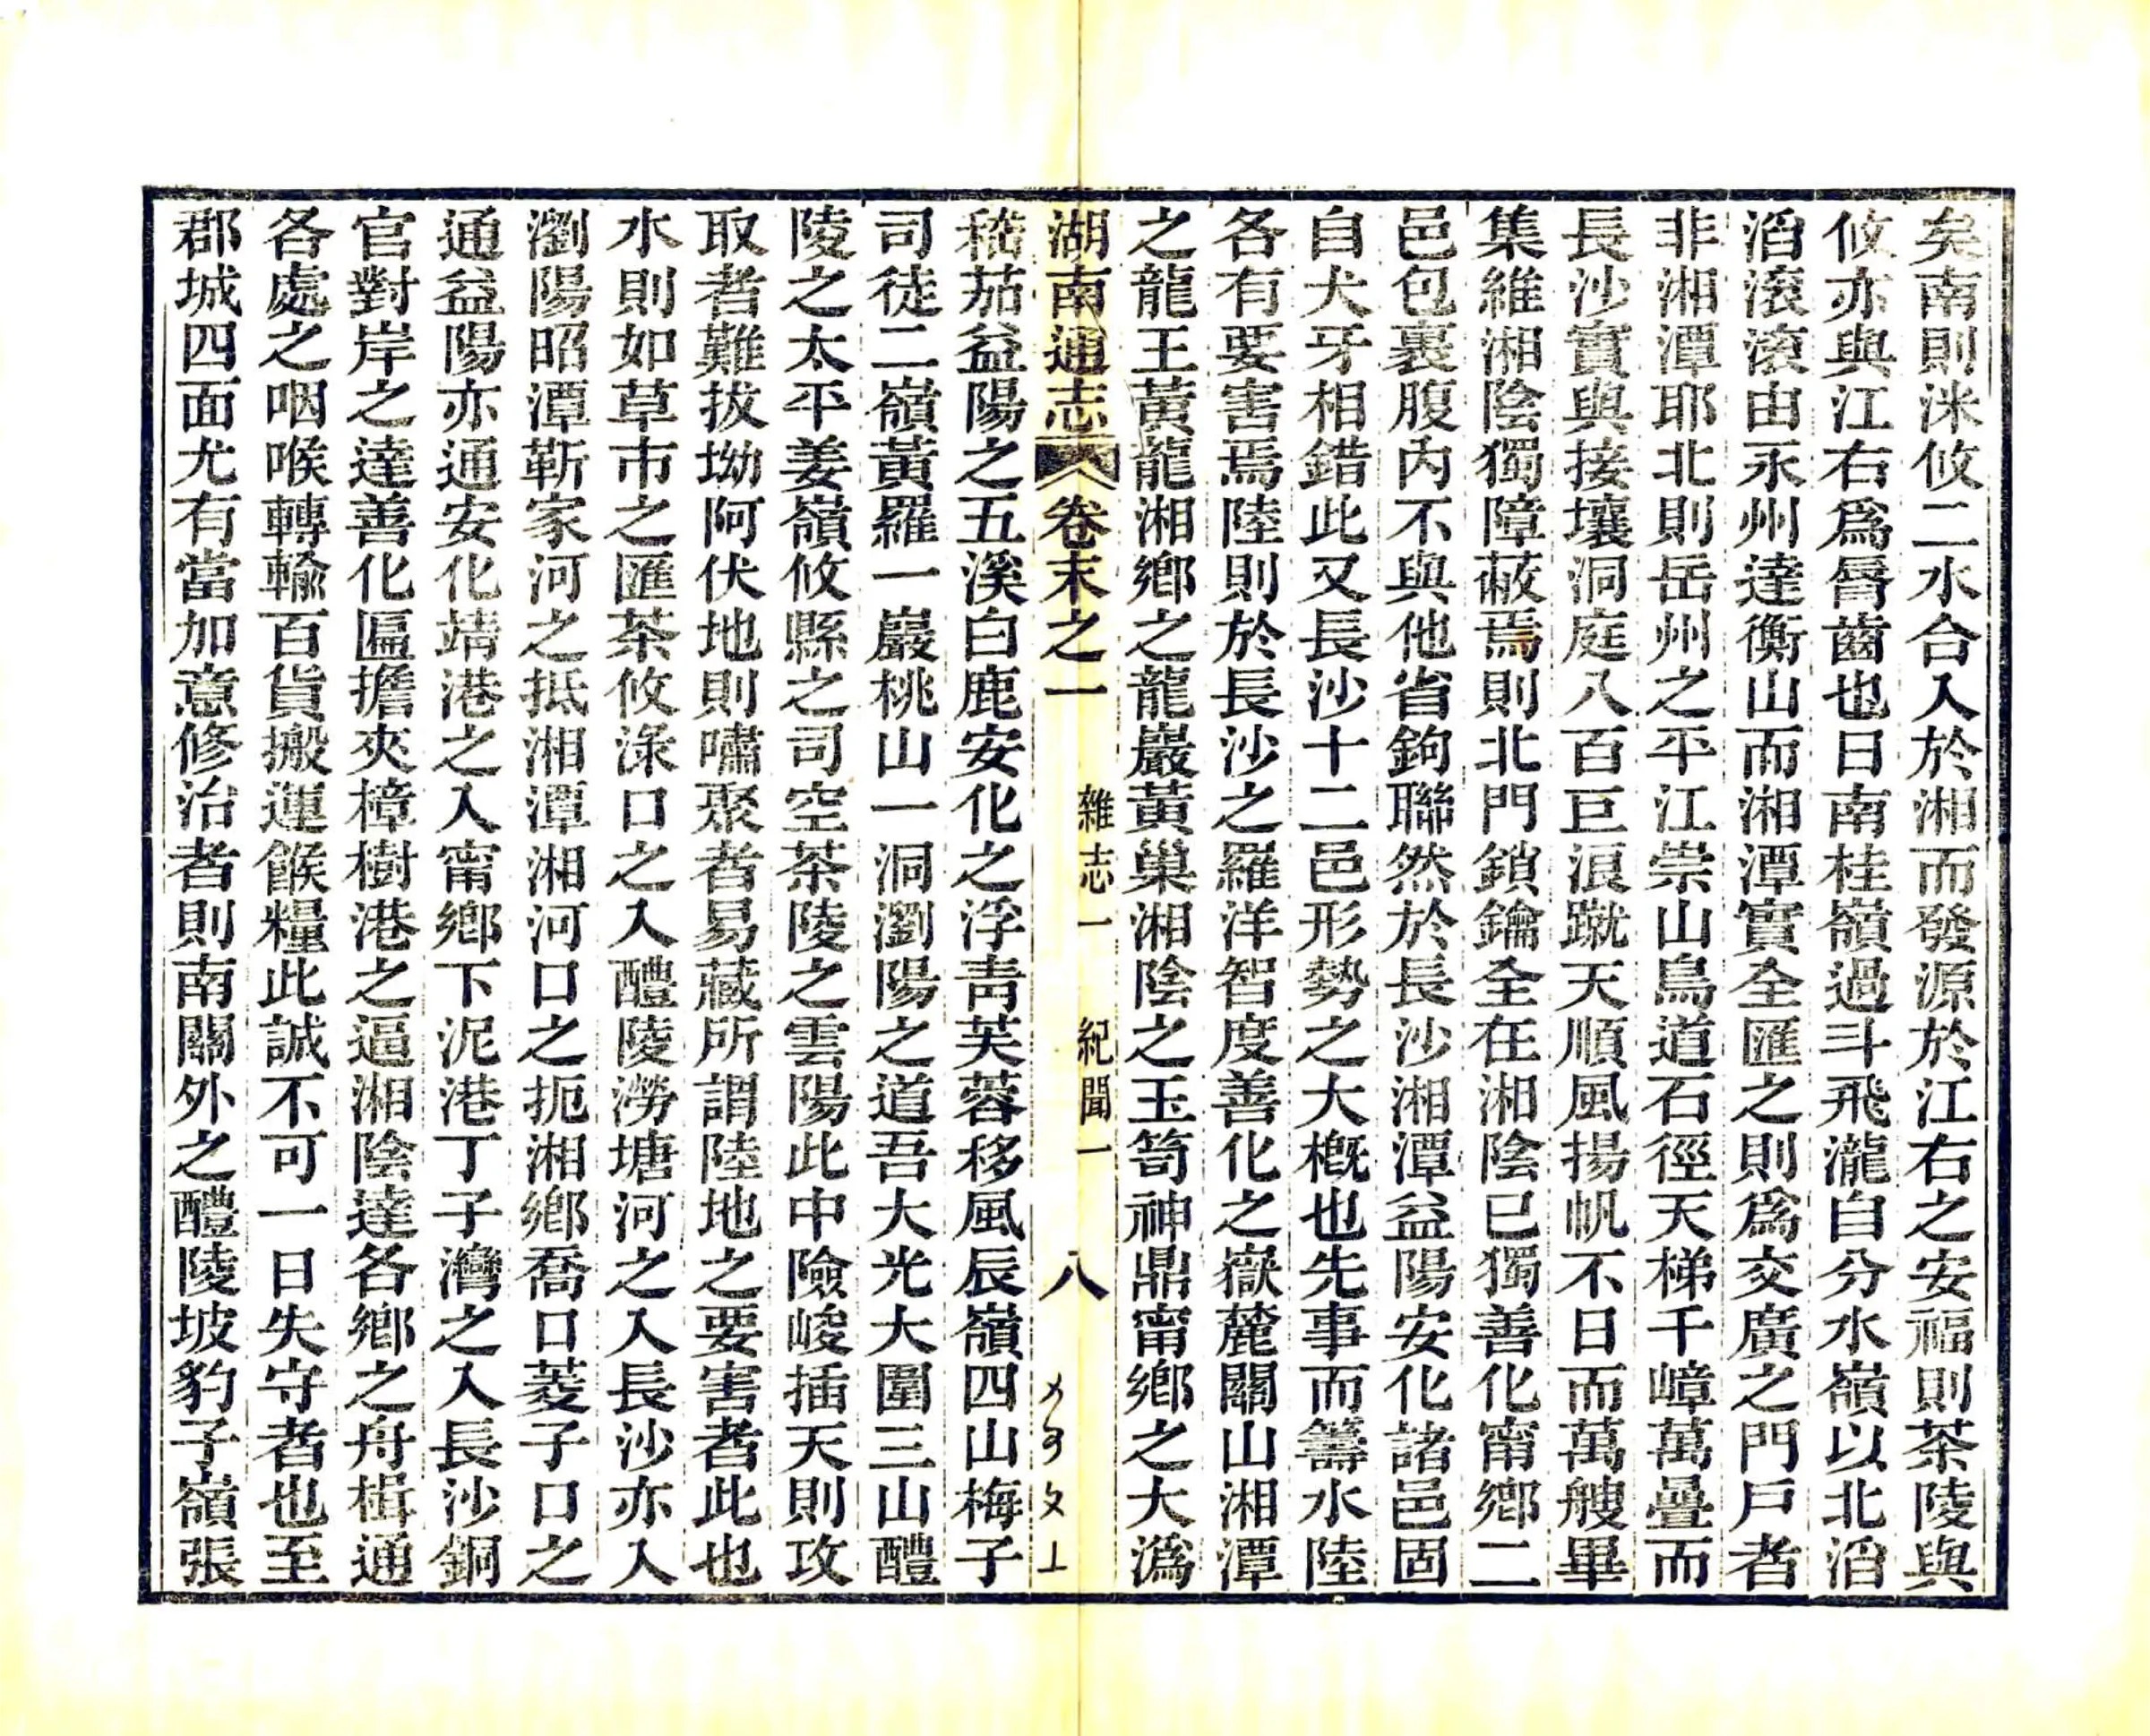 矣南則洣攸二水合入於湘而發源於江右之安福則茶陵與
攸亦與江右爲脣齒也曰南桂嶺過斗飛瀧自分水嶺以北滔
滔滾滾由永州達衡山而湘潭實全匯之則爲交廣之門戸者
非湘潭耶北則岳州之平江崇山鳥道石徑天梯千嶂萬疊而
長沙實與接壤洞庭八百巨浪蹴天順風揚帆不日而萬艘畢
集維湘陰獨障蔽焉則北門鎖鑰全在湘陰已獨善化甯鄉二
邑包裹腹內不與他省鉤聯然於長沙湘潭益陽安化諸邑固
自犬牙相錯此又長沙十二邑形勢之大槪也先事而籌水陸
各有要害焉陸則於長沙之羅洋智度善化之嶽麓關山湘潭
之龍王黃龍湘鄉之龍巖黃巢湘陰之玉笥神鼎甯鄉之大潙
湖南通志 卷末之一 雜志一 紀聞一 八
嵇茄益陽之五溪白鹿安化之浮靑芙蓉移風辰嶺四山梅子
司徒二嶺黃羅一巖桃山一洞瀏陽之道吾大光大圍三山醴
陵之太平姜嶺攸縣之司空茶陵之雲陽此中險峻插天則攻
取者難拔坳阿伏地則嘯聚者易藏所謂陸地之要害者此也
水則如草市之匯茶攸淥口之入醴陵澇塘河之入長沙亦入
瀏陽昭潭靳家河之抵湘潭湘河口之扼湘鄉喬口菱子口之
通益陽亦通安化靖港之入甯鄉下泥港丁子灣之入長沙銅
官對岸之達善化匾擔夾樟樹港之逼湘陰達各鄉之舟楫通
各處之咽喉轉輸百貨搬運餱糧此誠不可一日失守者也至
郡城四面尤有當加意修治者則南關外之醴陵坡豹子嶺張